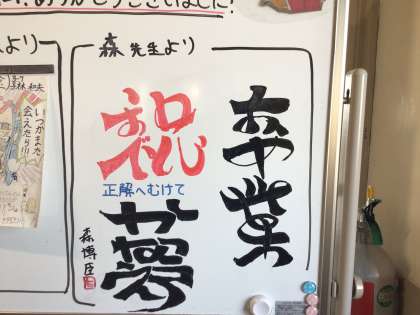 ありがとうございました!
より
森 先生より
卒業
祝
正解へむけて
夢
森博臣
いつかまた
会えたら